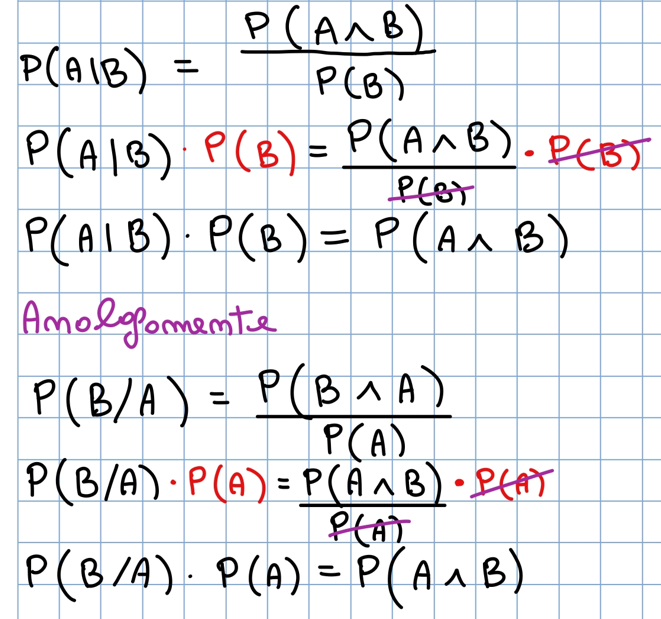 P(A|B) = P(A∧B) / P(B)
P(A|B) · P(B) = P(A∧B) / P(B) · P(B)
P(A|B) · P(B) = P(A∧B)
Analogamente
P(B/A) = P(B∧A) / P(A)
P(B/A) · P(A) = P(A∧B) / P(A) · P(A)
P(B/A) · P(A) = P(A∧B)